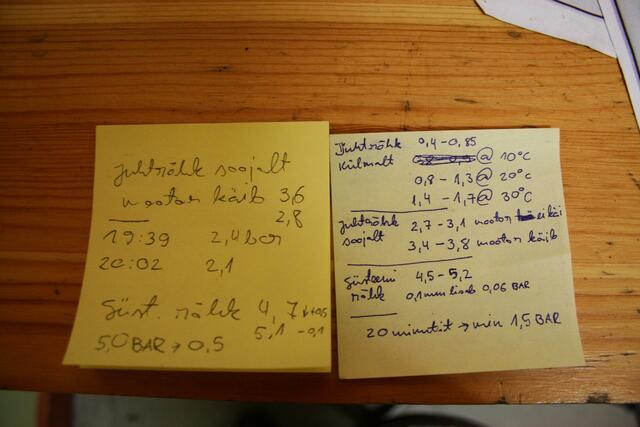 Juhtrõhk soojalt
mootor käib 3,6
2,8
19:39 2,4 bar
20:02 2,1
Süst. rõhk 4,7
5,1 -0,1
5,0 BAR → 0,5
Juhtrõhk 0,4 - 0,85
Külmalt @ 10°C
0,8 - 1,3 @ 20°C
1,4 - 1,7 @ 30°C
Juhtrõhk 2,7 - 3,1 mootor ei käi
soojalt 3,4 - 3,8 mootor käib
Süsteemi 4,5 - 5,2
rõhk 0,1mm lisab 0,06 BAR
20 minutit → min 1,5 BAR